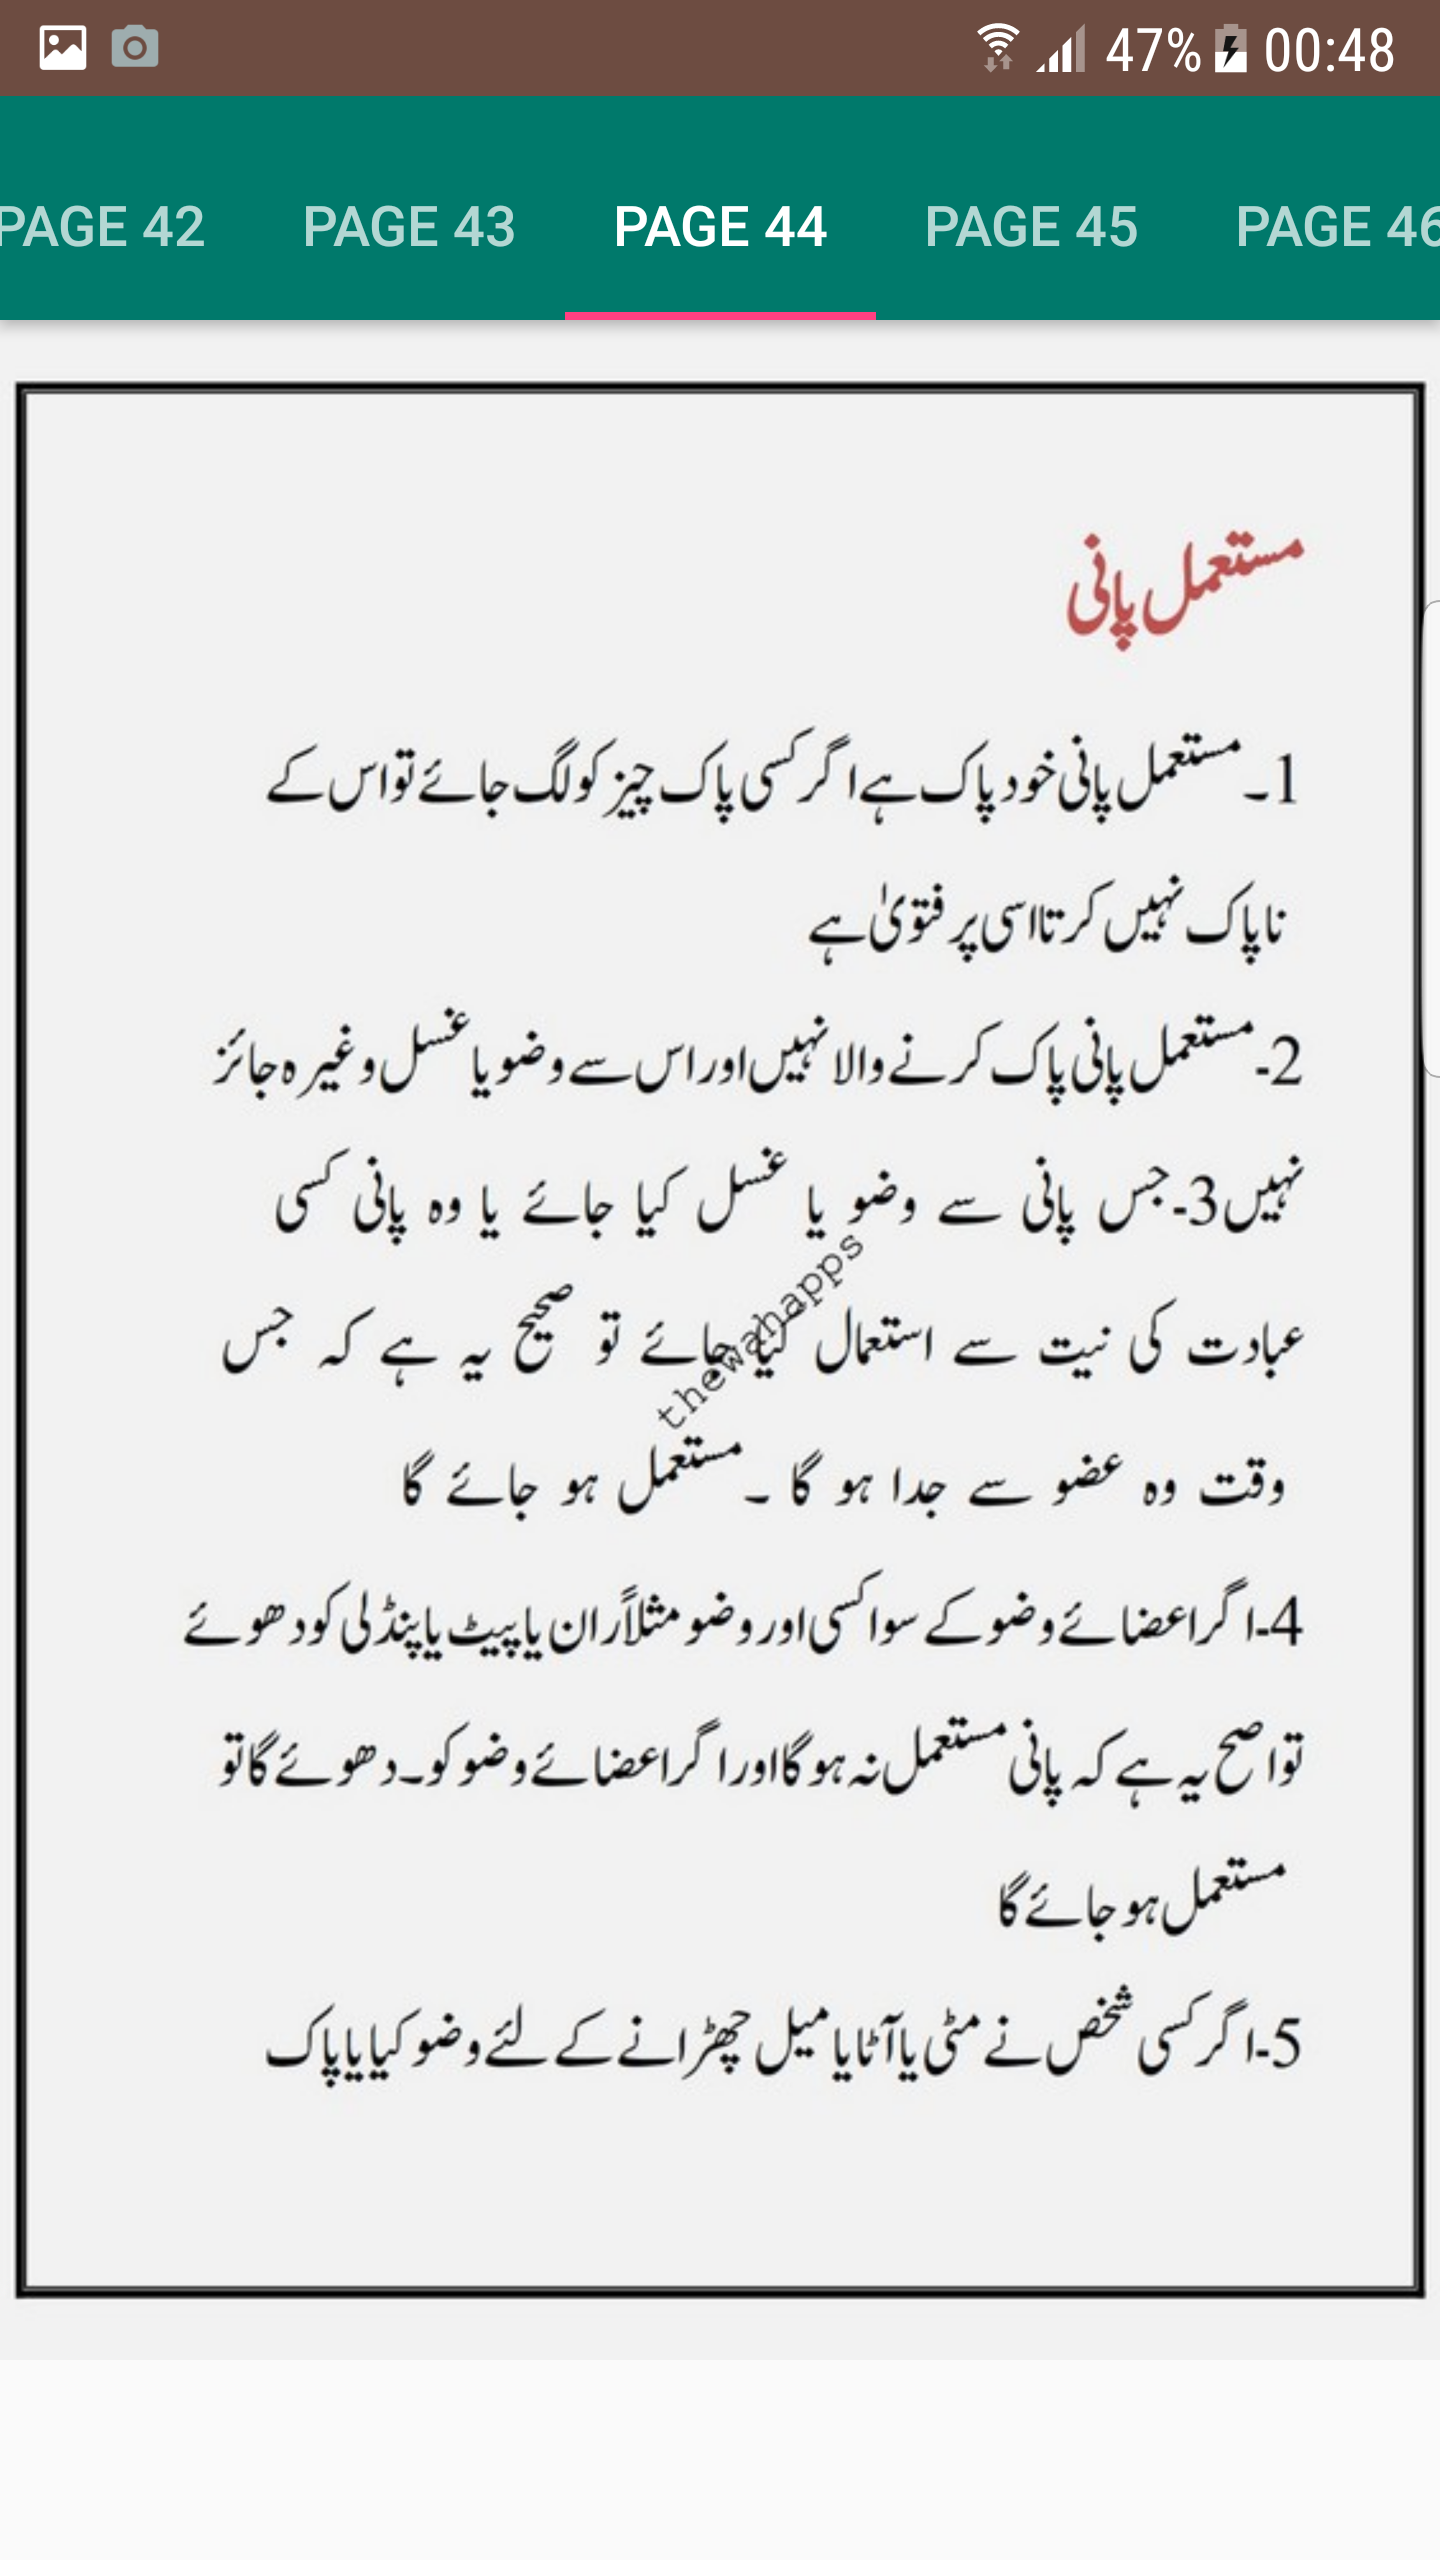 47% 00:48
PAGE 42 PAGE 43 PAGE 44 PAGE 45 PAGE 46
مستعمل پانی
1۔مستعمل پانی خود پاک ہے اگر کسی پاک چیز کو لگ جائے تو اس کے
ناپاک نہیں کرتا اسی پر فتویٰ ہے
2-مستعمل پانی پاک کرنے والا نہیں اور اس سے وضو یا غسل وغیرہ جائز
نہیں3-جس پانی سے وضو یا غسل کیا جائے یا وہ پانی کسی
عبادت کی نیت سے استعمال کیا جائے تو صحیح یہ ہے کہ جس
thewahapps
وقت وہ عضو سے جدا ہو گا ۔ مستعمل ہو جائے گا
4-اگر اعضائے وضو کے سوا کسی اور وضو مثلاً ران یا پیٹ یا پنڈلی کو دھوئے
تو اصح یہ ہے کہ پانی مستعمل نہ ہو گا اور اگر اعضائے وضو کو۔دھوئے گا تو
مستعمل ہو جائے گا
5-اگر کسی شخص نے مٹی یا آٹا یا میل چھڑانے کے لئے وضو کیا یا پاک